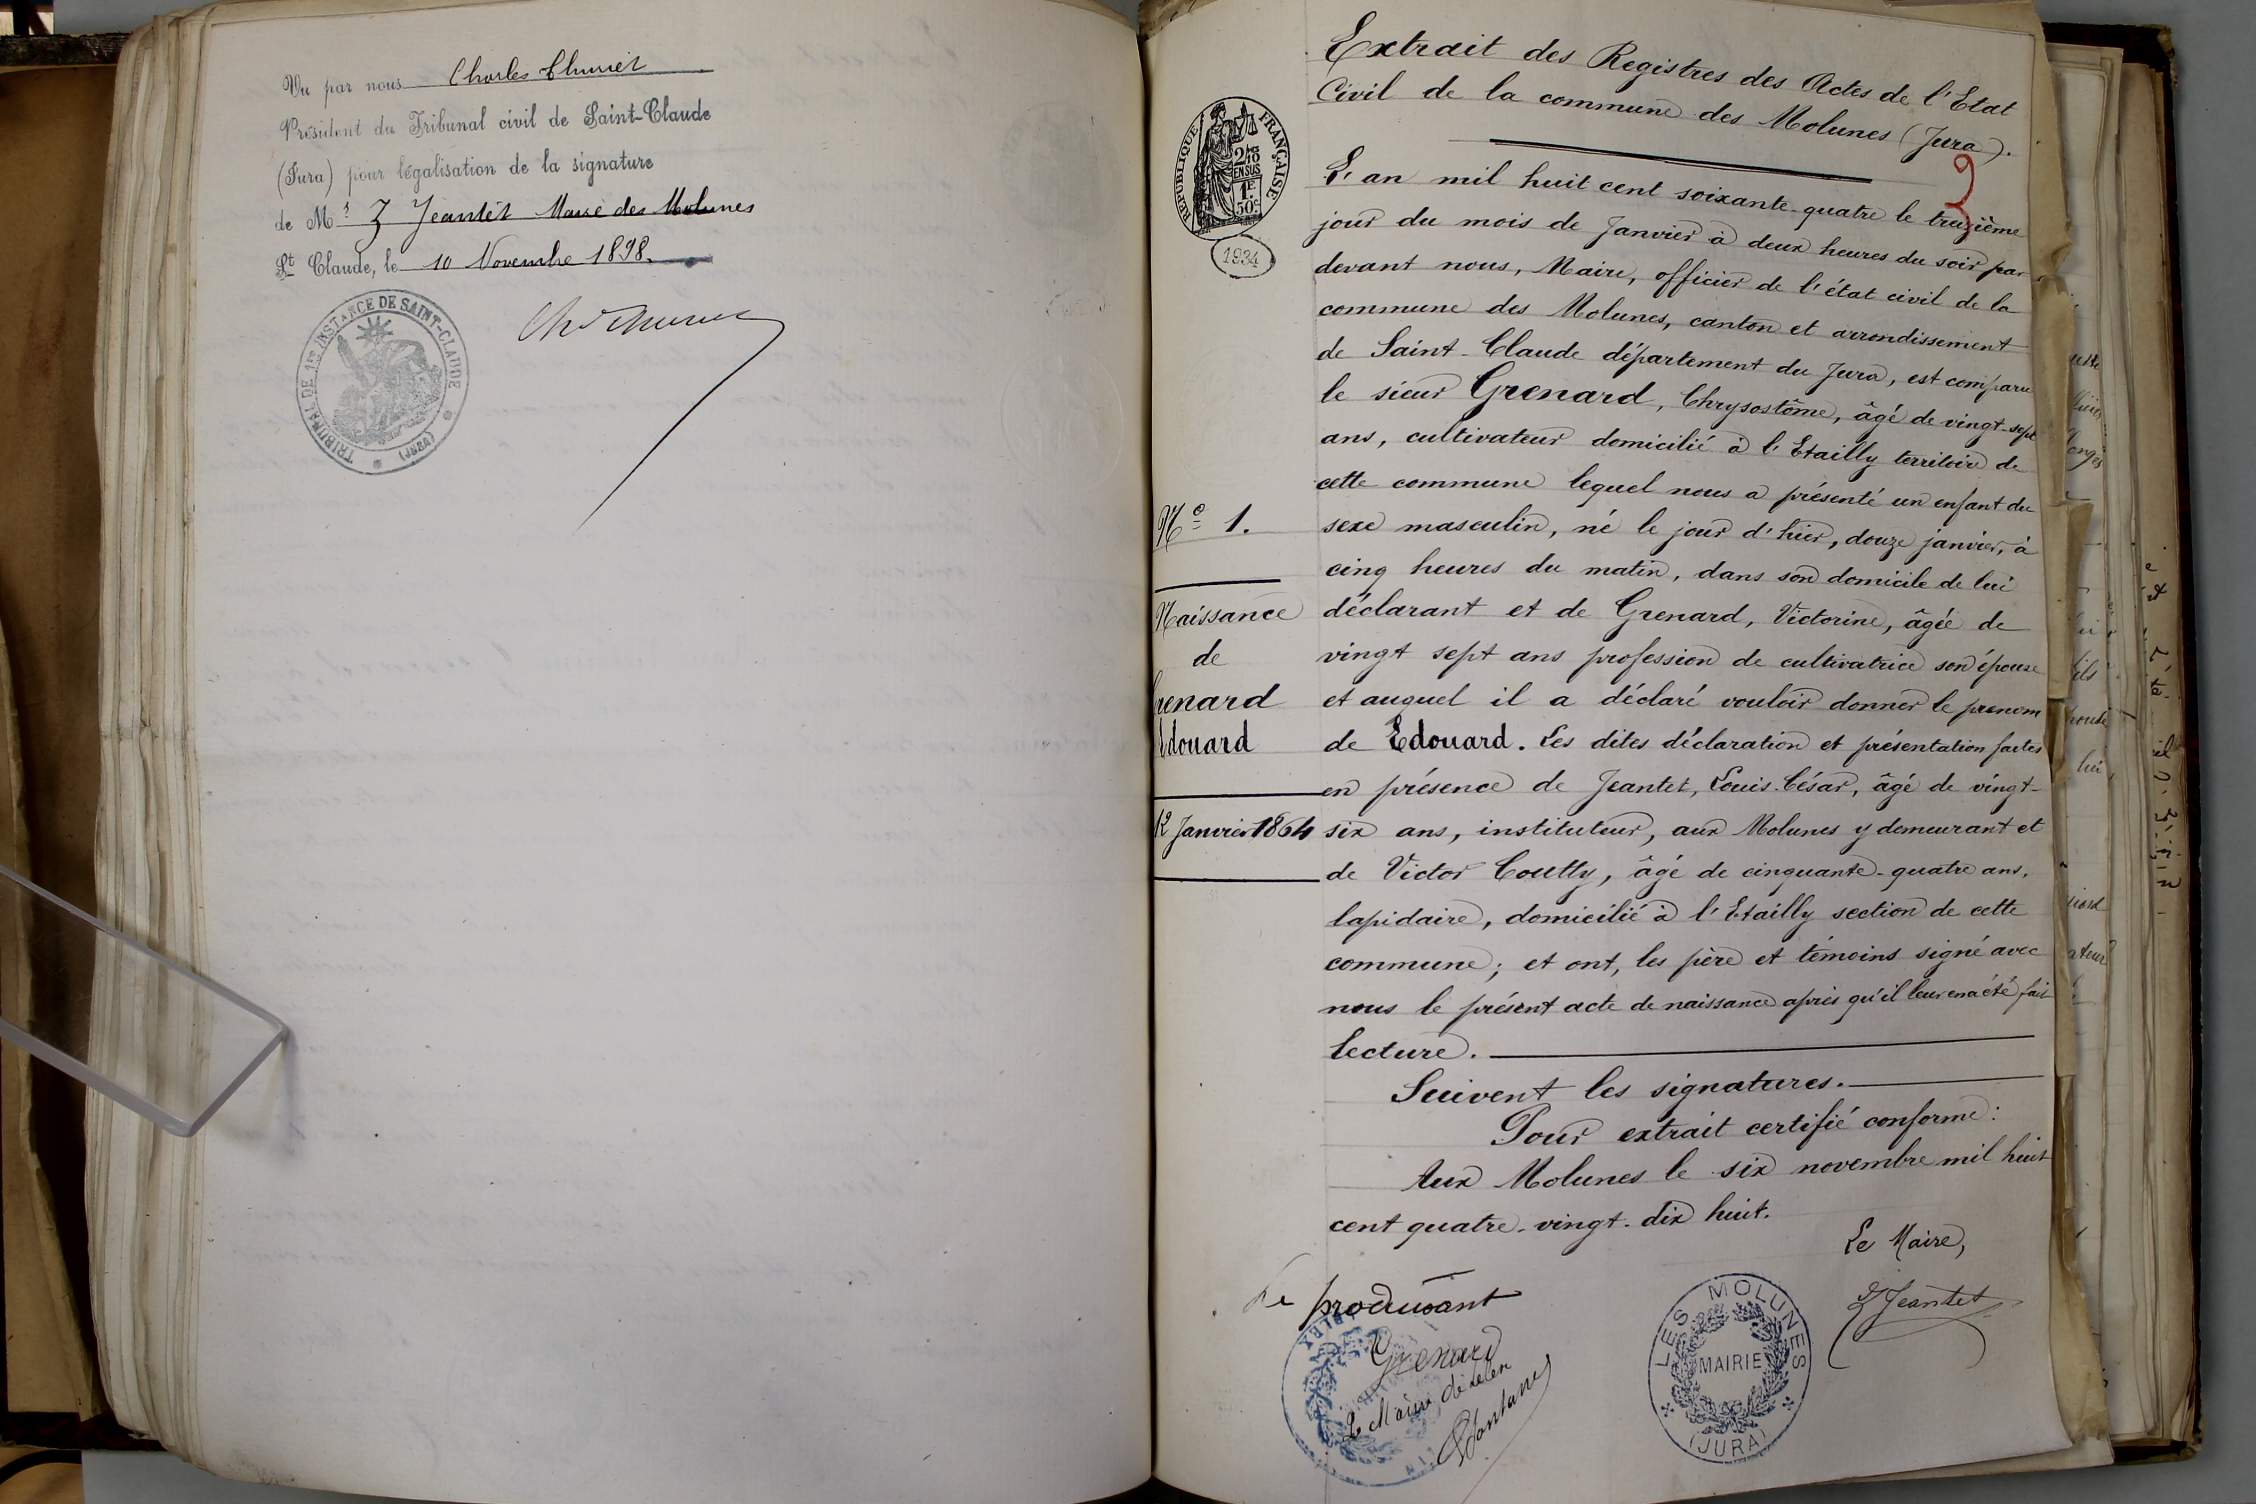 Vu par nous Charles Thuriet
Président du Tribunal civil de Saint-Claude
(Jura) pour légalisation de la signature
de Mr Z Jeantet Maire des Molunes
St Claude, le 10 Novembre 1898.
TRIBUNAL DE 1re INSTANCE DE SAINT-CLAUDE
(JURA)
Extrait des Registres des Actes de l'Etat
Civil de la commune des Molunes (Jura).
RÉPUBLIQUE FRANÇAISE
2/10 EN SUS
1F 50c
1934
L'an mil huit cent soixante-quatre le treizième
jour du mois de Janvier à deux heures du soir par
devant nous, Maire, officier de l'état civil de la
commune des Molunes, canton et arrondissement
de Saint-Claude département du Jura, est comparu
le sieur Grenard, Chrysostôme, âgé de vingt-sept
ans, cultivateur domicilié à l'Etailly territoire de
cette commune lequel nous a présenté un enfant du
sexe masculin, né le jour d'hier, douze janvier, à
cinq heures du matin, dans son domicile de lui
déclarant et de Grenard, Victorine, âgée de
vingt sept ans profession de cultivatrice son épouse
et auquel il a déclaré vouloir donner le prenom
de Edouard. Les dites déclaration et présentation faites
en présence de Jeantet, Louis-César, âgé de vingt-
six ans, instituteur, aux Molunes y demeurant et
de Victor Coutty, âgé de cinquante-quatre ans,
lapidaire, domicilié à l'Etailly section de cette
commune; et ont, les père et témoins signé avec
nous le présent acte de naissance après qu'il leur en a été fait
lecture.
Suivent les signatures.
Pour extrait certifié conforme:
Aux Molunes le six novembre mil huit
cent quatre-vingt-dix huit.
Le Maire,
Z Jeantet
No 1.
Naissance
de
Grenard
Edouard
12 Janvier 1864
Le produisant
Grenard
Le Maire
LES MOLUNES
MAIRIE
(JURA)